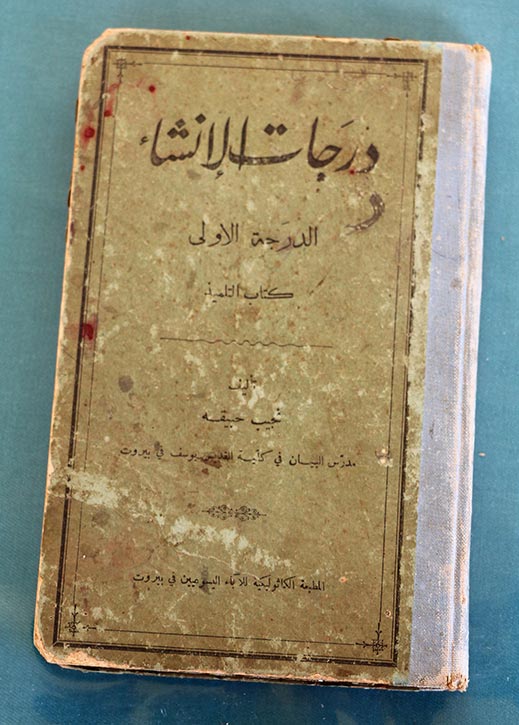 درَجات الإنشاء
الدرَجة الاولى
كتاب التلميذ
تأليف
نجيب حبيقه
مدرّس البيان في كلّية القديس يوسف في بيروت
المطبعة الكاثوليكية للآباء اليسوعيين في بيروت